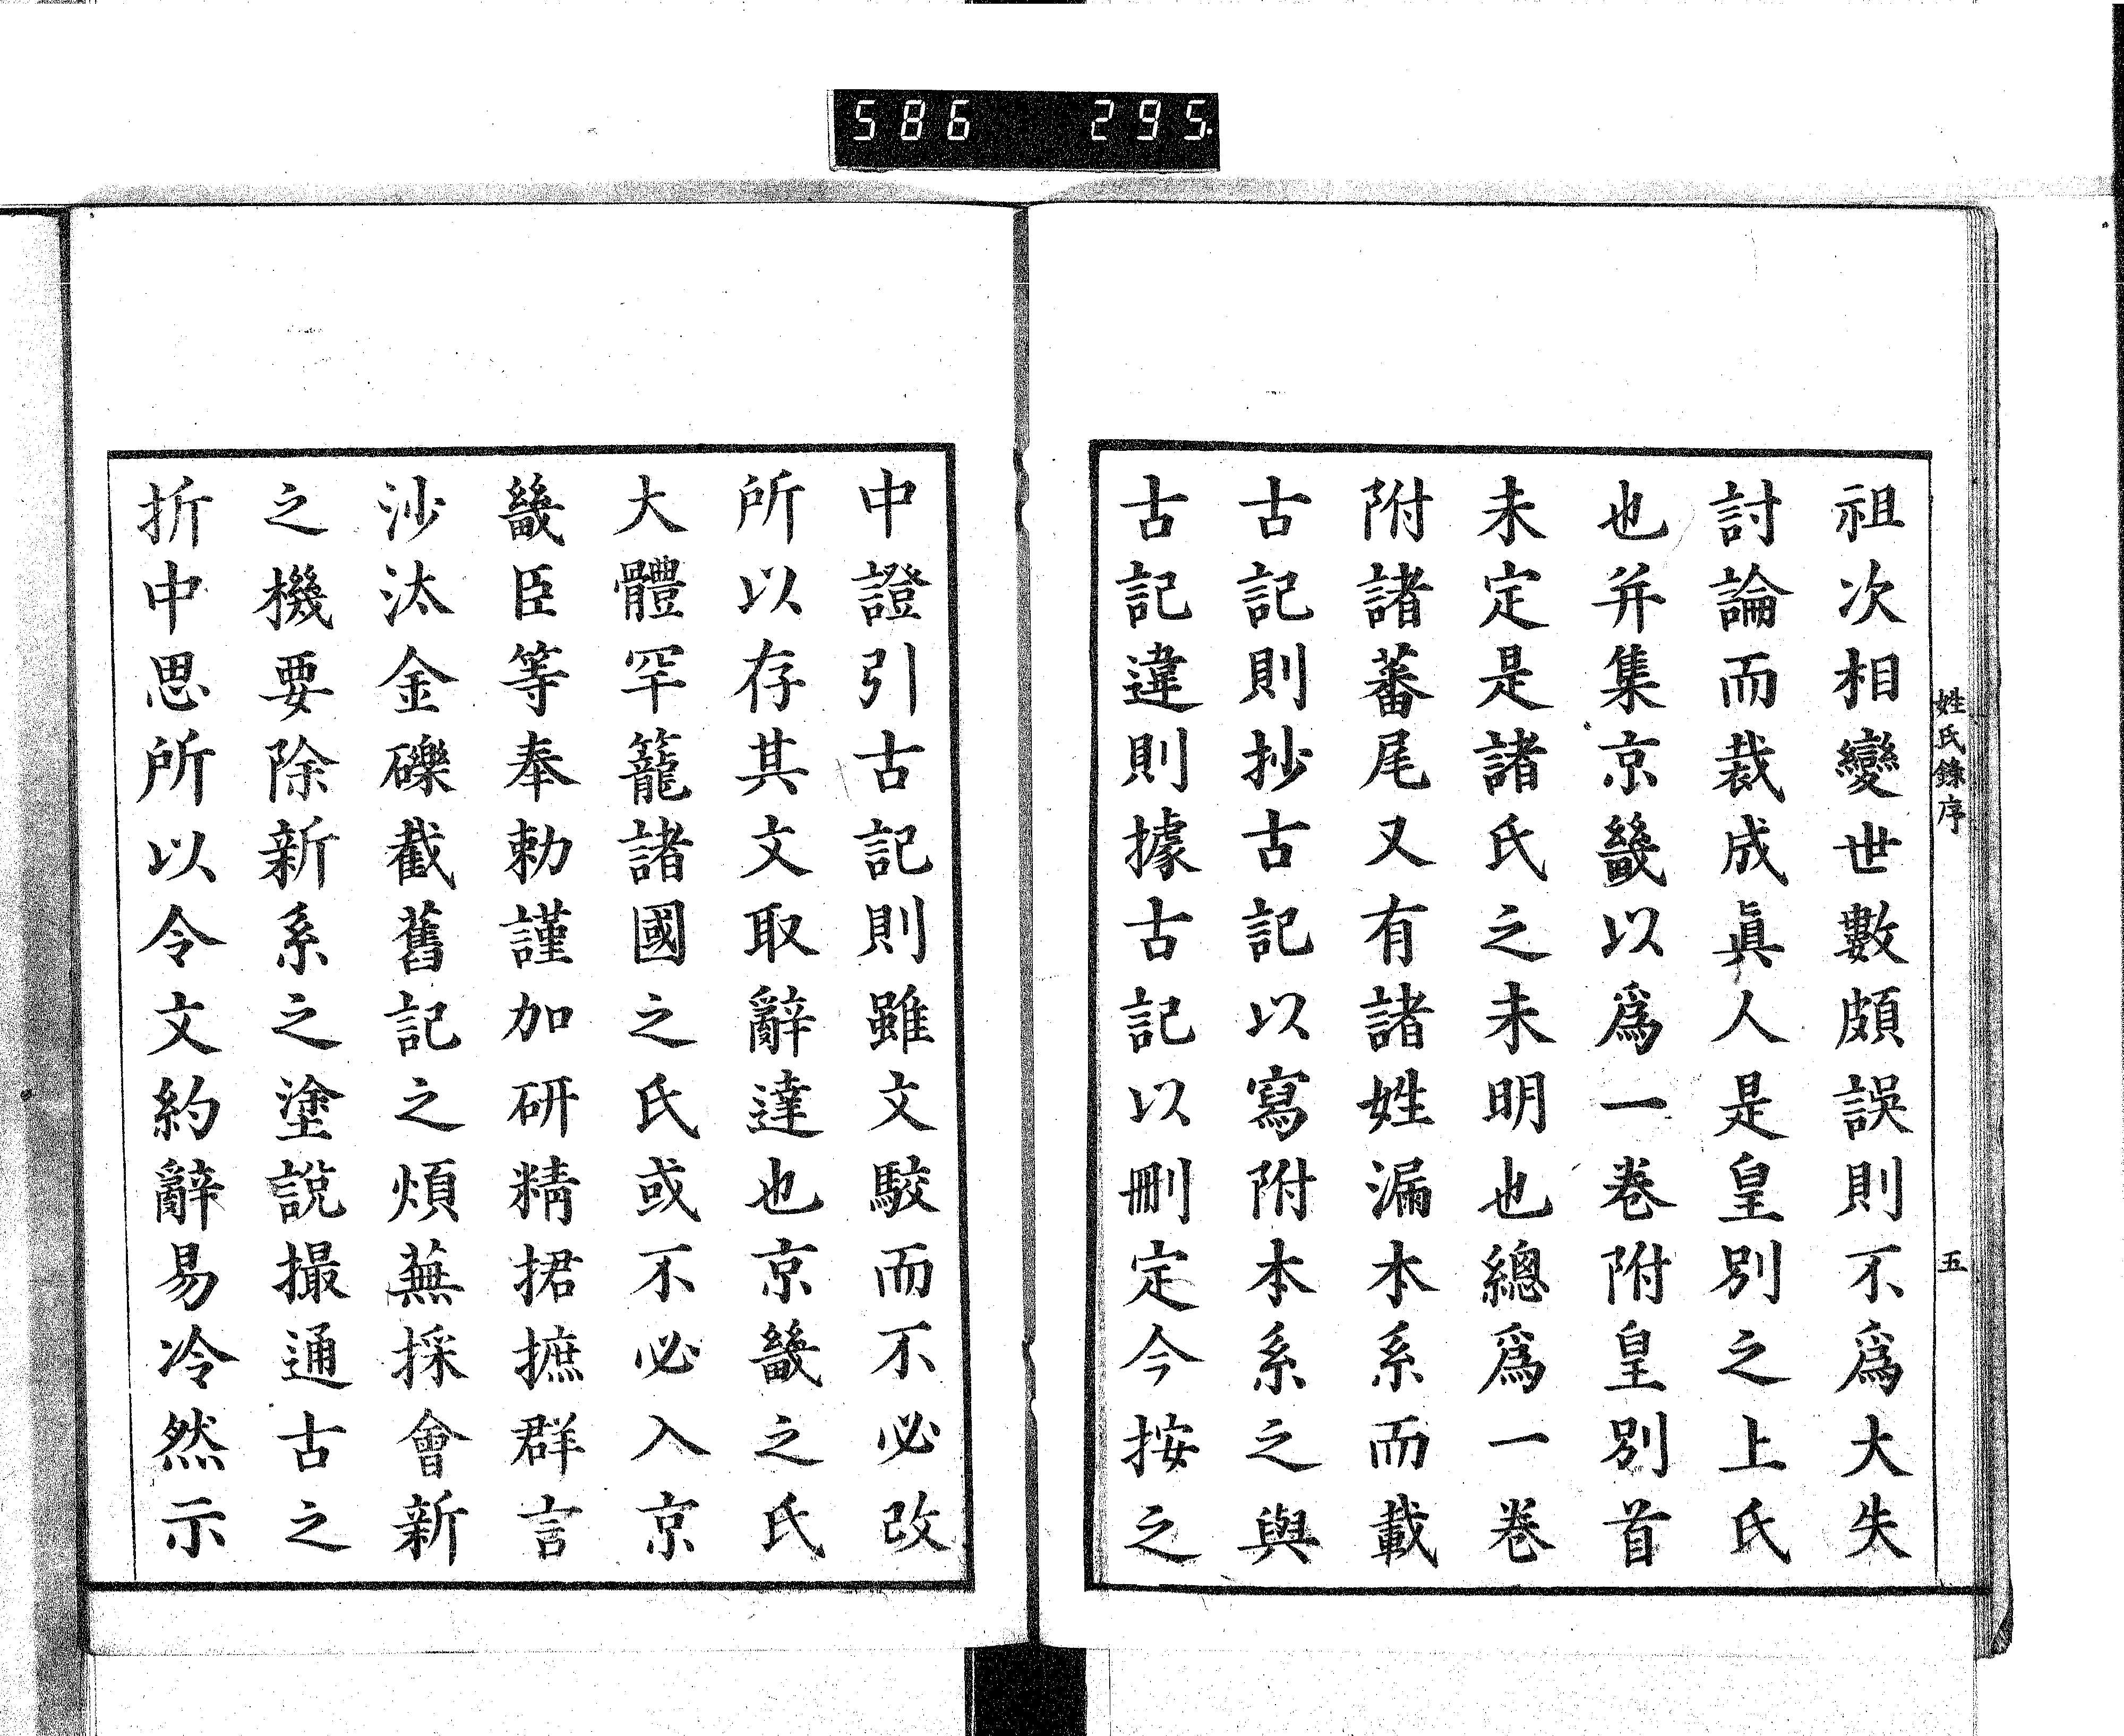 586 295.
姓氏錄序
五
祖次相變世數頗誤則不爲大失
討論而裁成眞人是皇別之上氏
也并集京畿以爲一卷附皇別首
未定是諸氏之未明也總爲一卷
附諸蕃尾又有諸姓漏本系而載
古記則抄古記以寫附本系之與
古記違則據古記以刪定今按之
中證引古記則雖文駮而不必改
所以存其文取辭達也京畿之氏
大體罕籠諸國之氏或不必入京
畿臣等奉勅謹加研精捃摭群言
沙汰金礫截舊記之煩蕪採會新
之機要除新系之塗說撮通古之
折中思所以令文約辭易冷然示